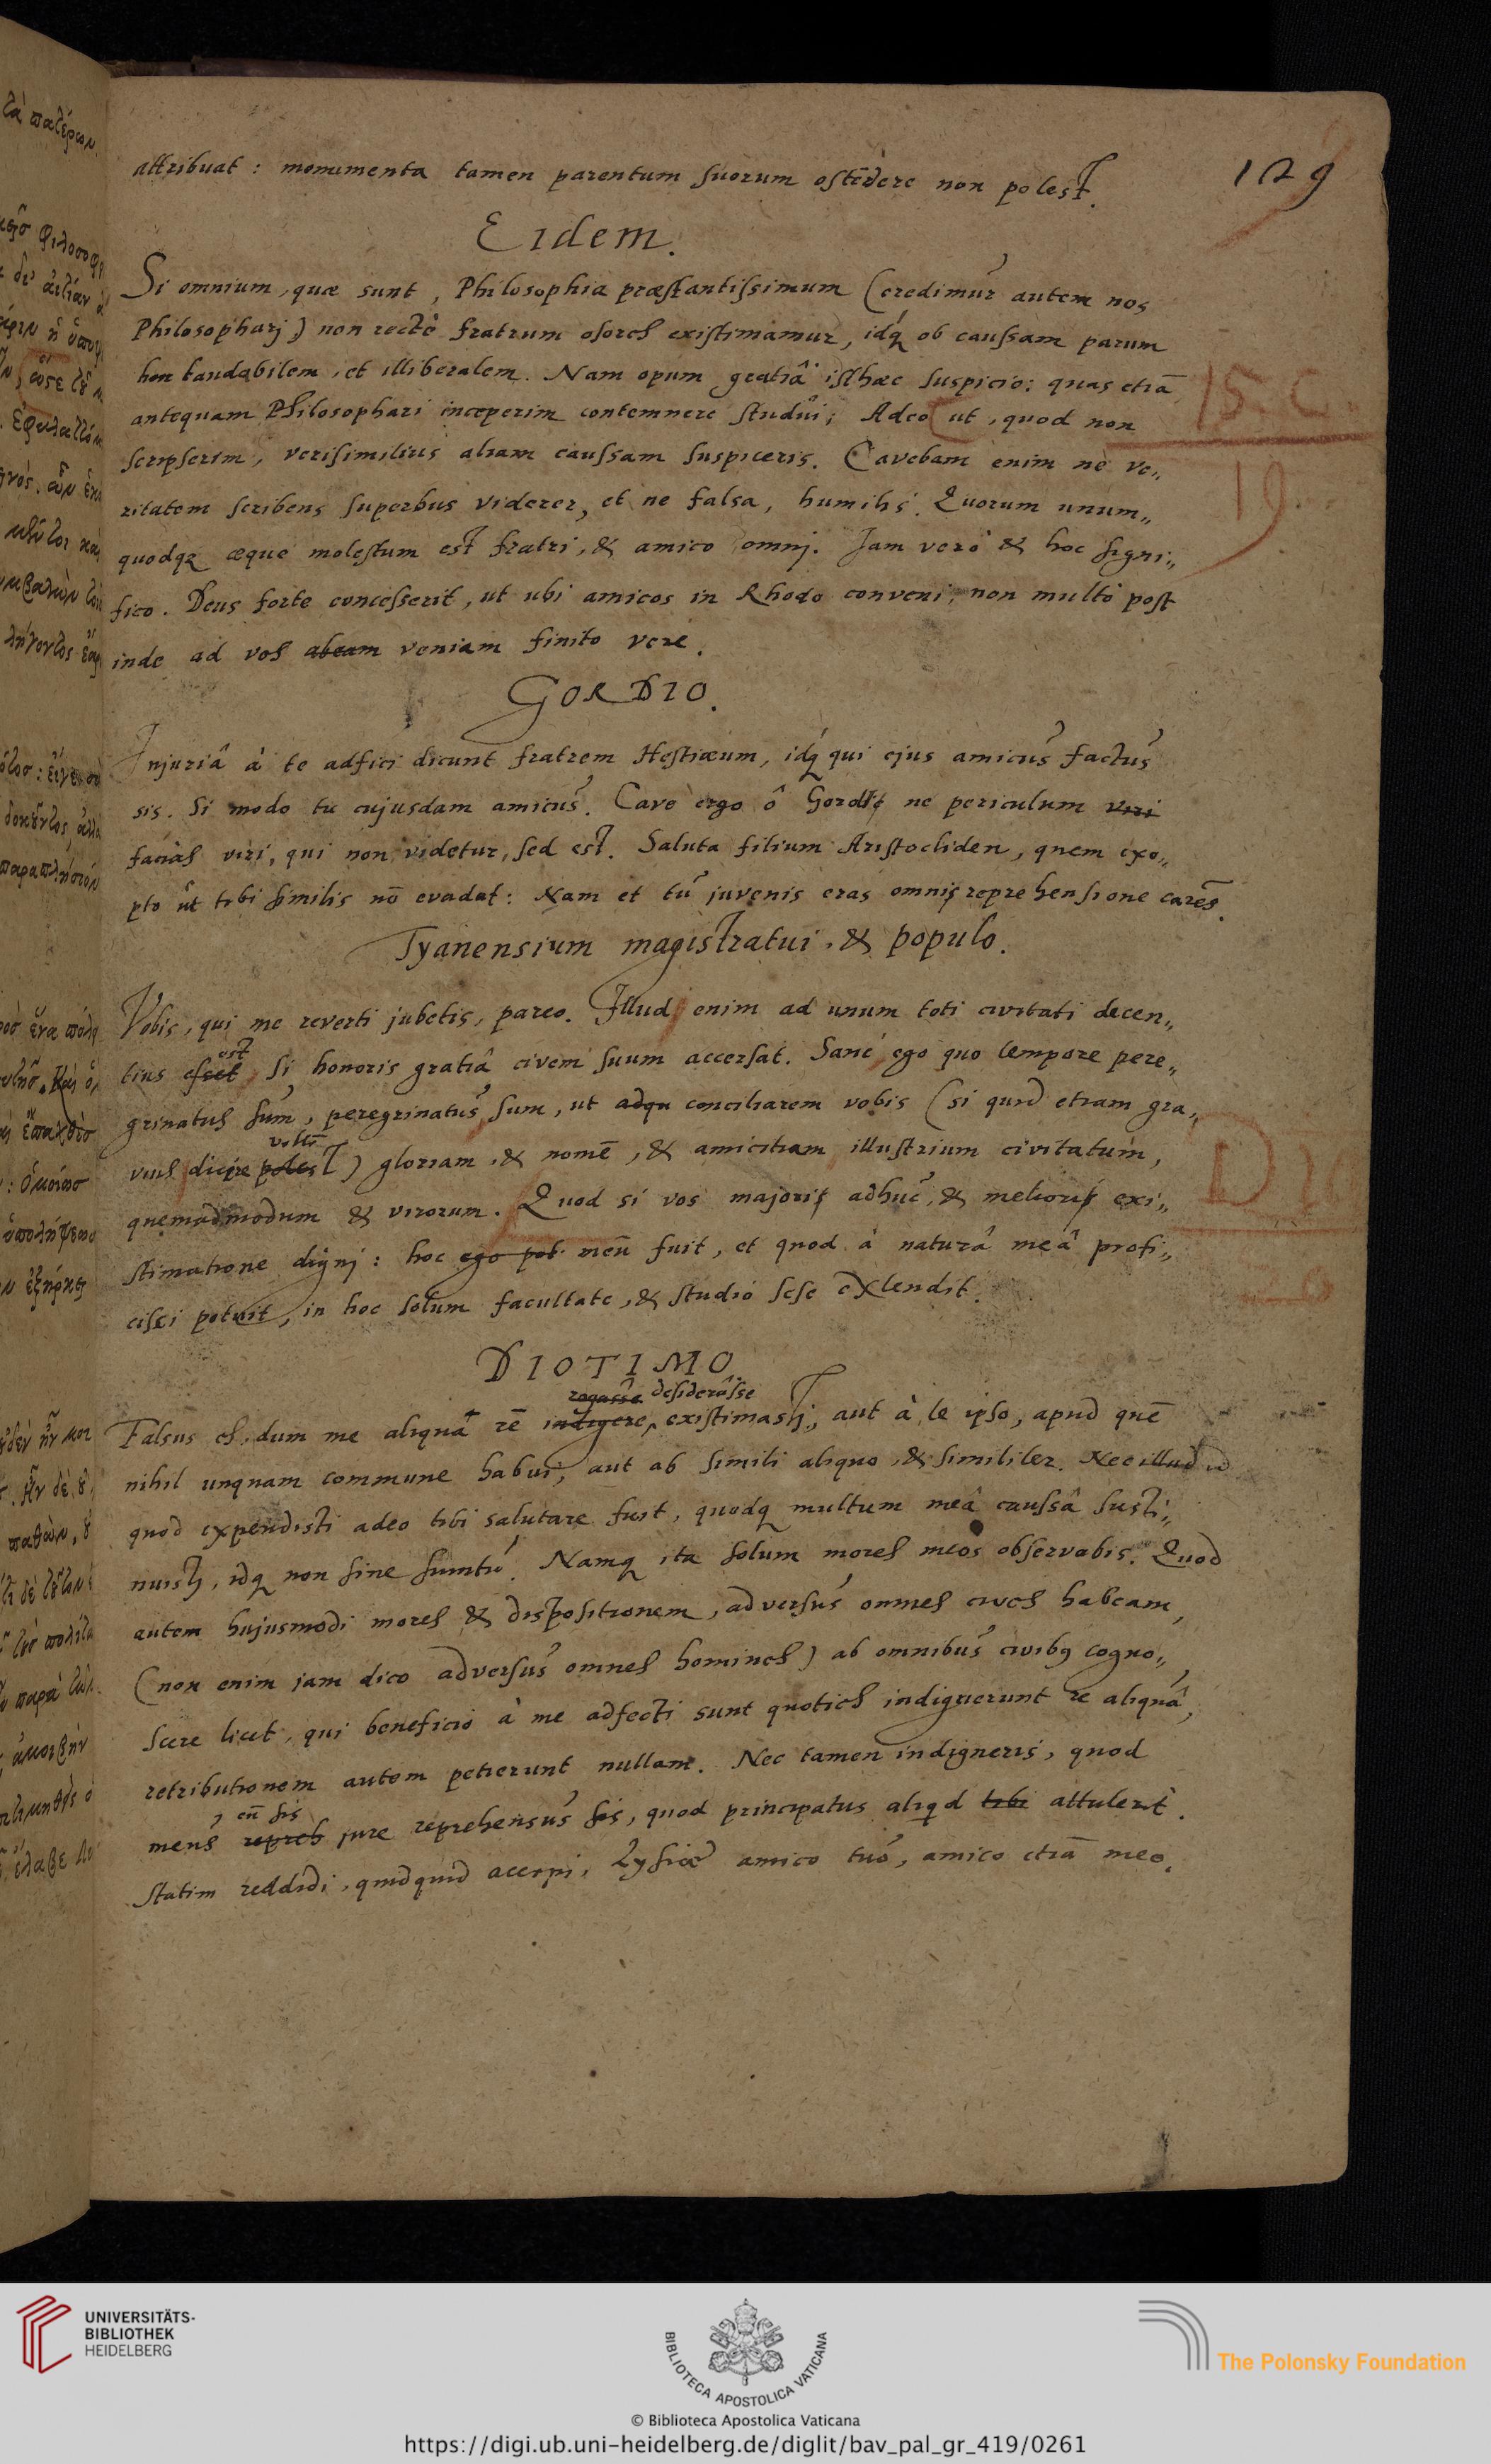 129
attribuat : monumenta tamen parentum suorum ostēdere non potest.
Eidem.
Si omnium, quæ sunt, Philosophia præstantissimum (credimur autem nos
Philosopharj) non rectè fratrum osores existimamur, idq́ ob caussam parum
laudabilem, et illiberalem. Nam opum gratiâ isthæc suspicio: quas etiā
antequam Philosophari inceperim contemnere studui; Adeo ut, quod non
scripserim, verisimilius aliam caussam suspiceris. Cavebam enim nè ve„
ritatem scribens superbus viderer, et ne falsa, humilis. Quorum unum„
quodqꝫ æque molestum est fratri, & amico omnj. Jam verò & hoc signi„
fico. Deus forte concesserit, ut ubi amicos in Rhodo conveni, non multò post
inde ad vos abeam veniam finito vere.
15. C.
19.
GORDIO.
Injuriâ à te adfici dicunt fratrem Hestiæum, idq́ qui ejus amicus factus
sis. Si modo tu cujusdam amicus. Cave ergo ô Gordi ne periculum viri
facias viri, qui non videtur, sed est. Saluta filium Aristocliden, quem exo„
pto ut tibi similis nō evadat: Nam et tu juvenis eras omni reprehensione carēs.
Tyanensium magistratui, & populo.
Vobis, qui me reverti jubetis, pareo. Illud enim ad unum toti civitati decen„
tius esset est si honoris gratiâ civem suum accersat. Sanè ego quo tempore pere„
grinatus sum, peregrinatus sum, ut adqu conciliarem vobis (si quid etiam gra„
vius dicere potest) gloriam, & nomē, & amicitiam illustrium civitatum,
quemadmodum & virorum. Quod si vos majoris adhuc, & melioris exi„
stimatione dignj: hoc ego pot meū fuit, et quod à naturâ meâ profi„
cisci potuit, in hoc solum facultate, & studio sese extendit.
DIOTIMO.
rogasse desiderâsse
Falsus es, dum me aliquā rē indigere, existimastj, aut à te ipso, apud quē
nihil unquam commune habui, aut ab simili aliquo, & similiter. Nec illud
quod expendisti adeo tibi salutare fuit, quodq multum meâ caussâ susti„
nuistj, idq non sine sumtu. Namq ita solum mores meos observabis. Quod
autem hujusmodi mores & dispositionem, adversus omnes cives habeam,
(non enim jam dico adversus omnes homines) ab omnibus civibꝰ cogno„
scere licet, qui beneficio à me adfecti sunt quoties indiguerunt re aliquâ,
retributionem autem petierunt nullam. Nec tamen indigneris, quod
eū sis
meus repreh jure reprehensus sis, quod principatus aliqd tibi attulerit.
Statim reddidi, quidquid accepi, Lysiæ amico tuo, amico etiā meo.
UNIVERSITÄTS-
BIBLIOTHEK
HEIDELBERG
BIBLIOTECA APOSTOLICA VATICANA
The Polonsky Foundation
© Biblioteca Apostolica Vaticana
https://digi.ub.uni-heidelberg.de/diglit/bav_pal_gr_419/0261